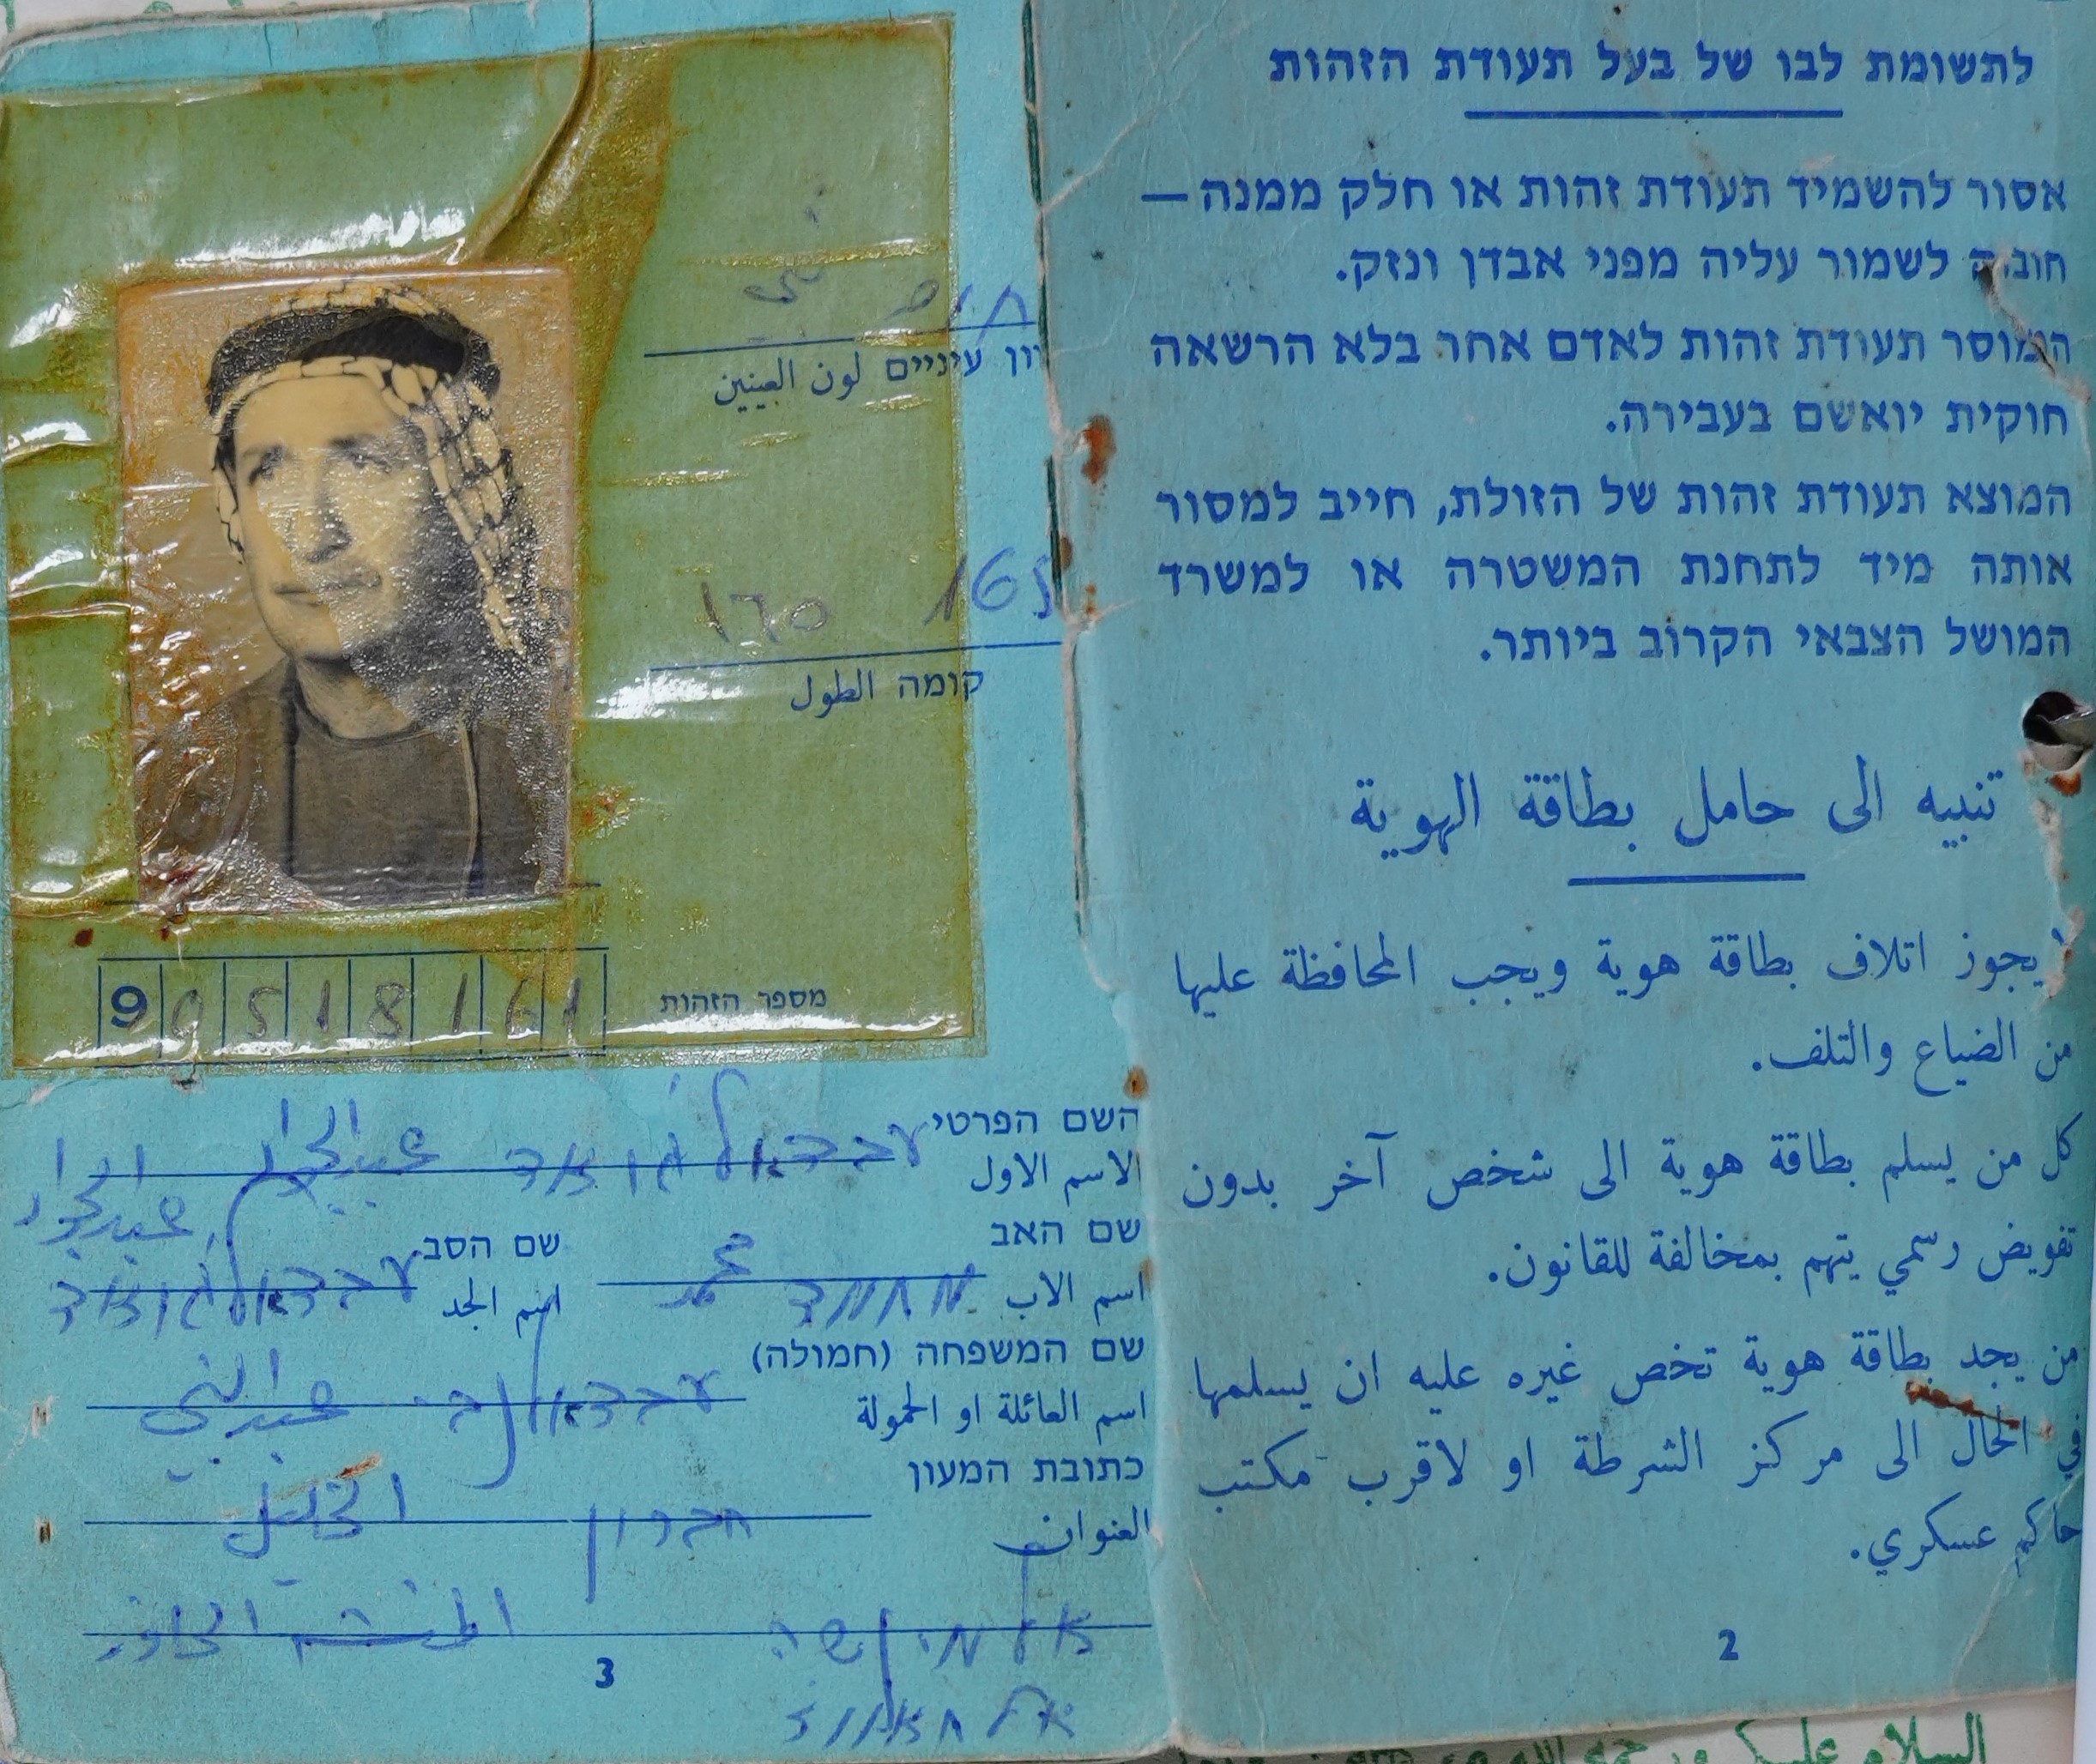 לתשומת לבו של בעל תעודת הזהות
אסור להשמיד תעודת זהות או חלק ממנה —
חובה לשמור עליה מפני אבדן ונזק.
המוסר תעודת זהות לאדם אחר בלא הרשאה
חוקית יואשם בעבירה.
המוצא תעודת זהות של הזולת, חייב למסור
אותה מיד לתחנת המשטרה או למשרד
המושל הצבאי הקרוב ביותר.
تنبيه الى حامل بطاقة الهوية
لا يجوز اتلاف بطاقة هوية ويجب المحافظة عليها
من الضياع والتلف.
كل من يسلم بطاقة هوية الى شخص آخر بدون
تفويض رسمي يتهم بمخالفة للقانون.
من يجد بطاقة هوية تخص غيره عليه ان يسلمها
في الحال الى مركز الشرطة او لاقرب مكتب
حاكم عسكري.
2
חום
עיניים لون العينين
165 170
קומה الطول
מספר הזהות 9 0 5 1 8 1 6 1
השם הפרטי עבדאלגואד عبد الجواد
الاسم الاول
שם האב מחמד محمد שם הסב עבדאלגואד عبد الجواد
اسم الاب اسم الجد
שם המשפחה (חמולה) عبد النبي
اسم العائلة او الحمولة
כתובת המעון חברון الخليل
العنوان
3
السلام عليكم ورحمة الله